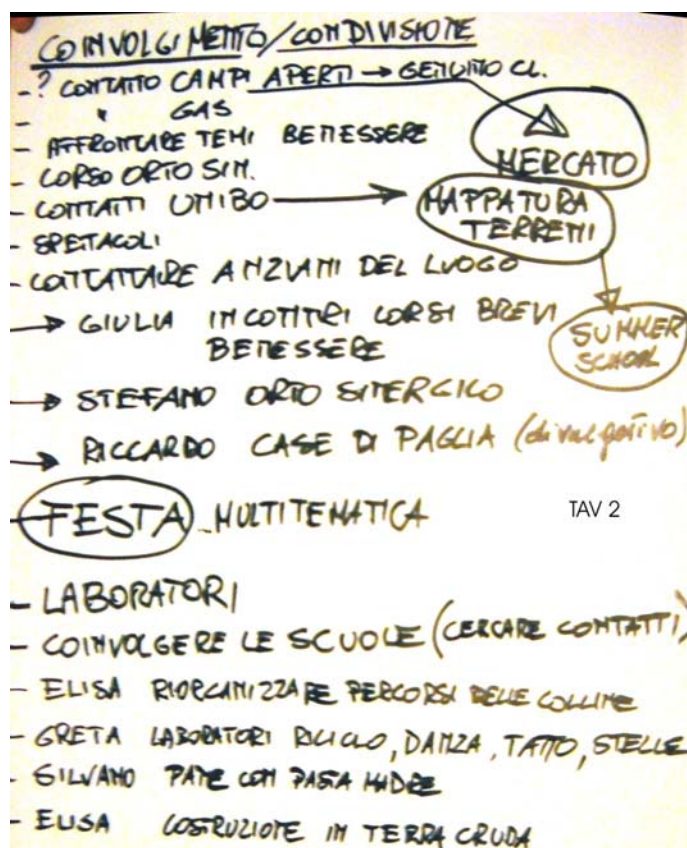 COINVOLGIMENTO/CONDIVISIONE
- ? CONTATTO CAMPI APERTI → GENUINO CL.
- " GAS
- AFFRONTARE TEMI BENESSERE
MERCATO
- CORSO ORTO SIN.
- CONTATTI UNIBO → MAPPATURA
TERRENI
- SPETTACOLI
- CONTATTARE ANZIANI DEL LUOGO
→ GIULIA INCONTRI CORSI BREVI
BENESSERE
SUMMER
SCHOOL
→ STEFANO ORTO SINERGICO
→ RICCARDO CASE DI PAGLIA (divulgativo)
- FESTA MULTITEMATICA
TAV 2
- LABORATORI
- COINVOLGERE LE SCUOLE (CERCARE CONTATTI)
- ELISA RIORGANIZZARE PERCORSI DELLE COLLINE
- GRETA LABORATORI RICICLO, DANZA, TATTO, STELLE
- SILVANO PANE CON PASTA MADRE
- ELISA COSTRUZIONE IN TERRA CRUDA